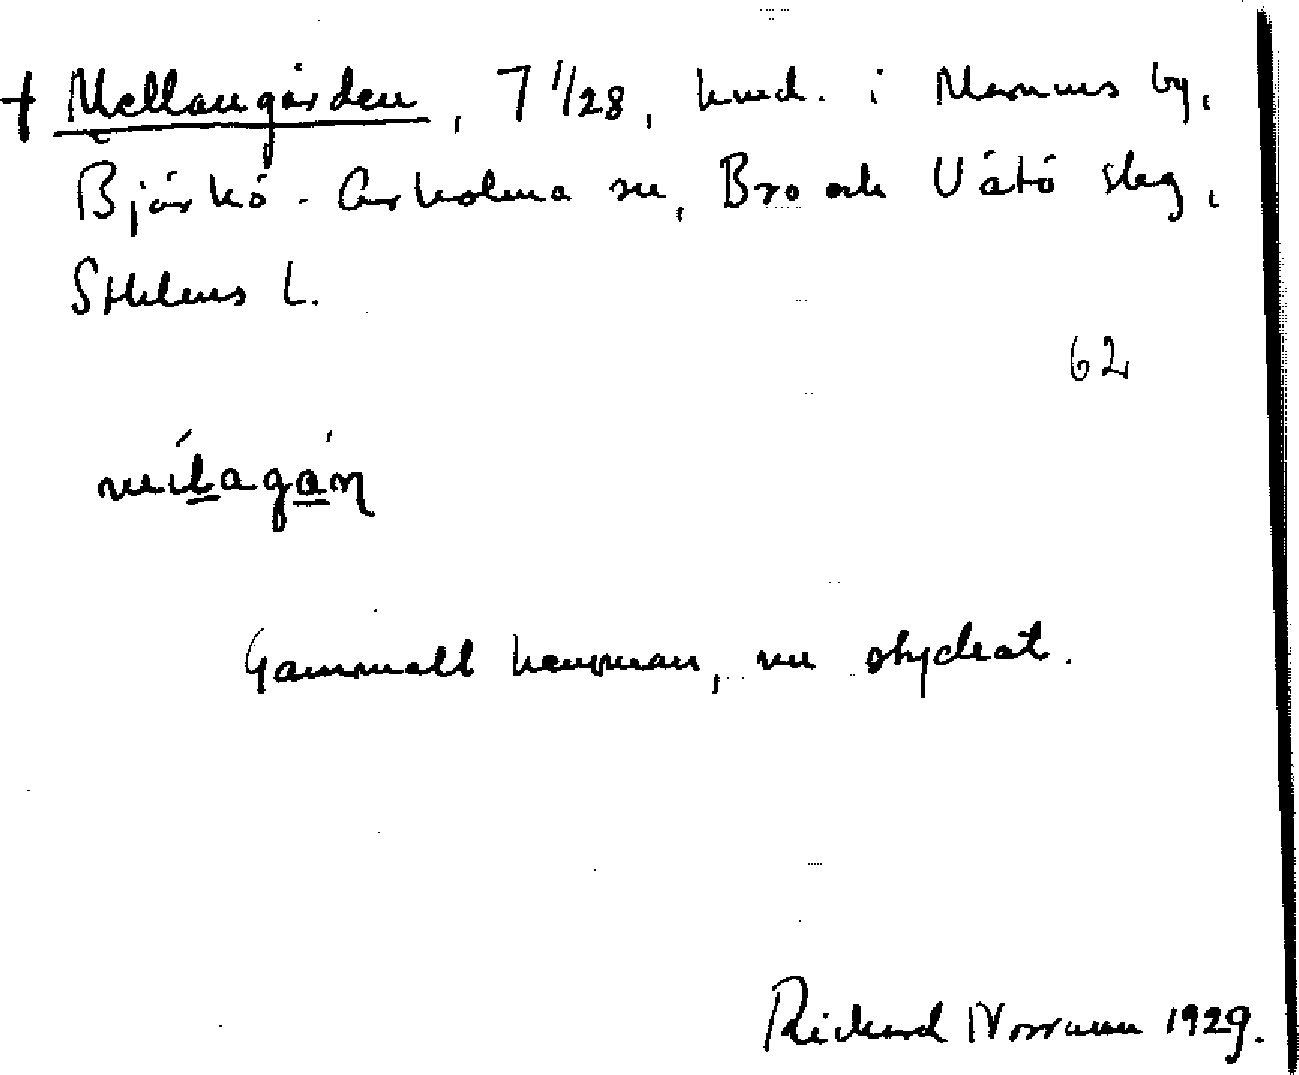 † Mellangården, 7 1/28, hmd. i Marums by,
Björkö-Arholma sn, Bro och Vätö slg,
Sthlms L.
62
Gammalt hemman, nu stycket.
Richard Norrman 1929.